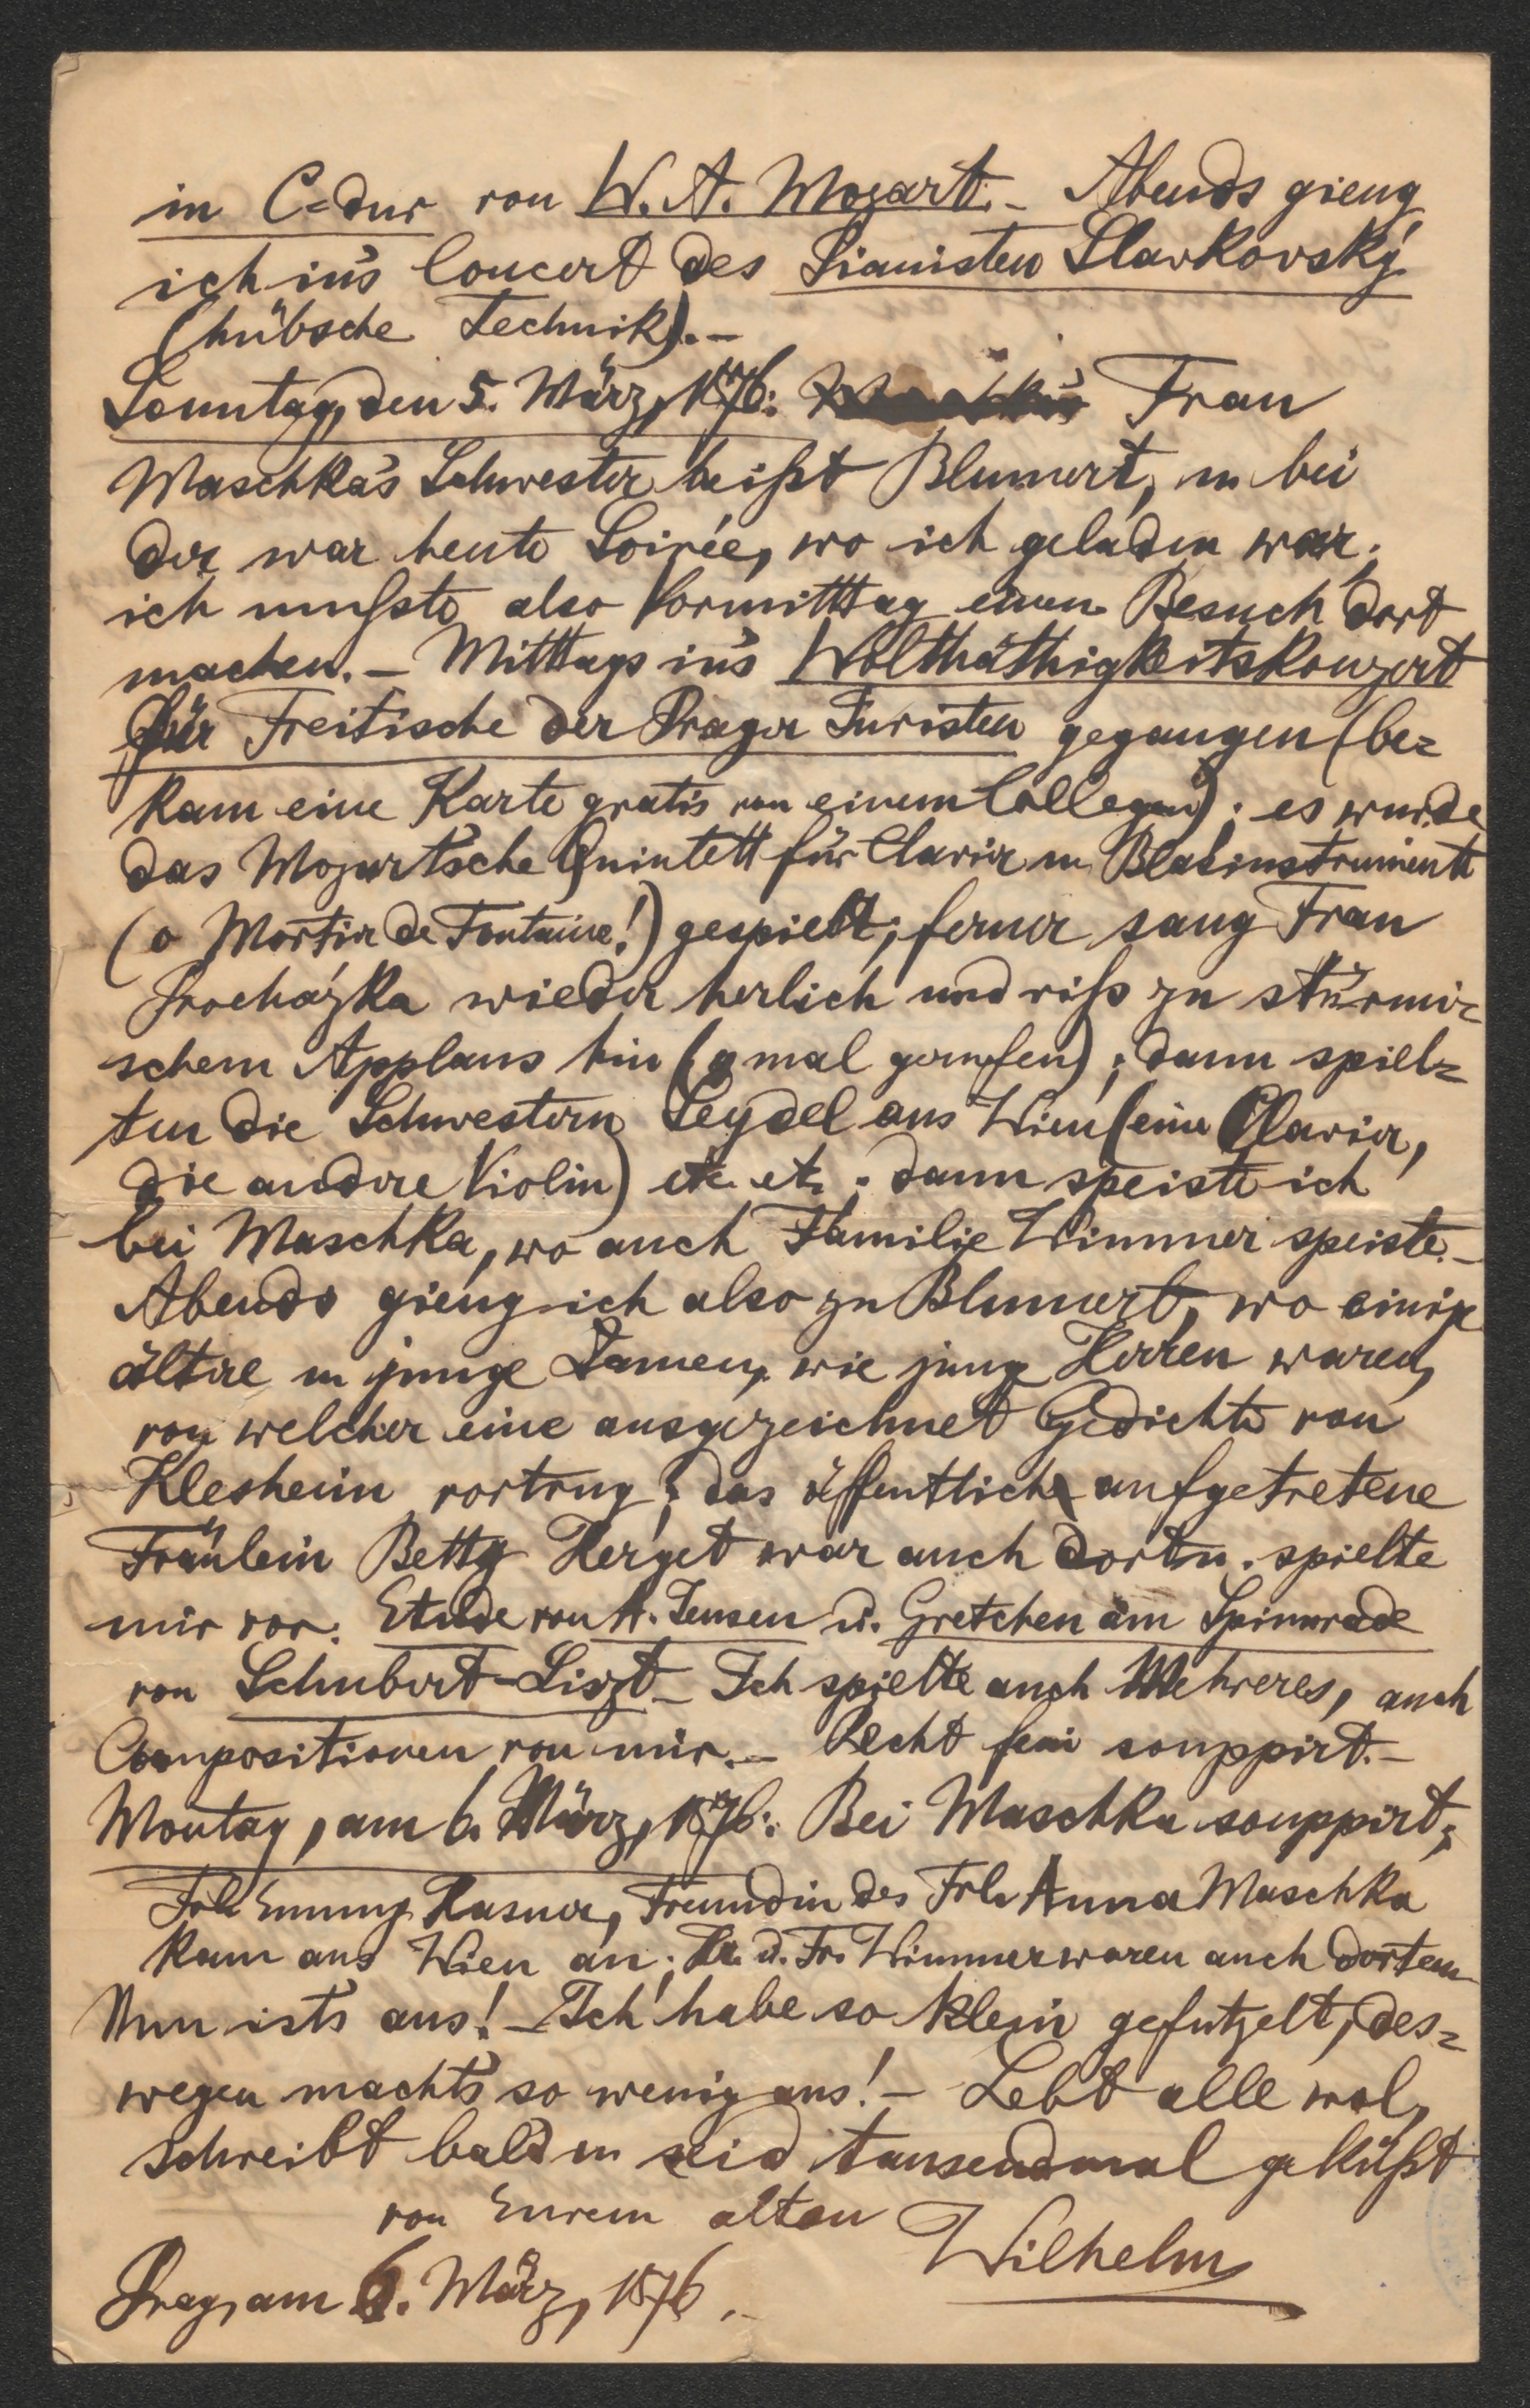 in C=dur von W. A. Mozart. – Abends gieng
ich in's Concert des Pianisten Slavkovský
(hübsche Technik). –
Sonntag, den 5. März, 1876: Frau
Maschka's Schwester heißt Blumert, u. bei
der war heute Soirée, wo ich geladen war;
ich mußte also Vormitttag einen Besuch dort
machen. – Mitttags in's Wolthäthigkeitskonzert
für Freitische der Prager Juristen gegangen (be=
kam eine Karte gratis von einem Collegen); es wurde
das Mozart'sche Quintett für Clavier u. Blasinstrumente
(o Mortier de Fontaine!) gespielt; ferner sang Frau
Procházka wieder herlich und riß zu stürmi=
schem Applaus hin ( mal gerufen); dann spiel=
ten die Schwestern Seydel aus Wien (eine Clavier,
die andere Violin) etc. etc.; dann speiste ich
bei Maschka, wo auch Familie Wimmer speiste. –
Abends gieng ich also zu Blumert, wo einige
ältere u. junge Damen, wie junge Herren waren,
von welcher eine ausgezeichnet Gedichte von
Klesheim vortrug; das öffentlich aufgetretene
Fräulein Betty Herget war auch dort u. spielte
mir vor: Etude von A. Jensen u. Gretchen am Spinnrade
von Schubert-Liszt. – Ich spielte auch Mehreres, auch
Compositionen von mir. – Recht fein souppirt. –
Montag, am 6. März, 1876: Bei Maschka souppirt;
Frl. Emmy Kasner, Freundin des Frl. Anna Maschka
kam aus Wien an; Hr. u. Fr. Wimmer waren auch dorten.
Nun ist's aus! – Ich habe so klein gefutzelt, des=
wegen macht's so wenig aus! – Lebt alle wol,
schreibt bald u. seid tausendmal geküßt
von Eurem alten
Wilhelm
Prag, am 6. März, 1876.